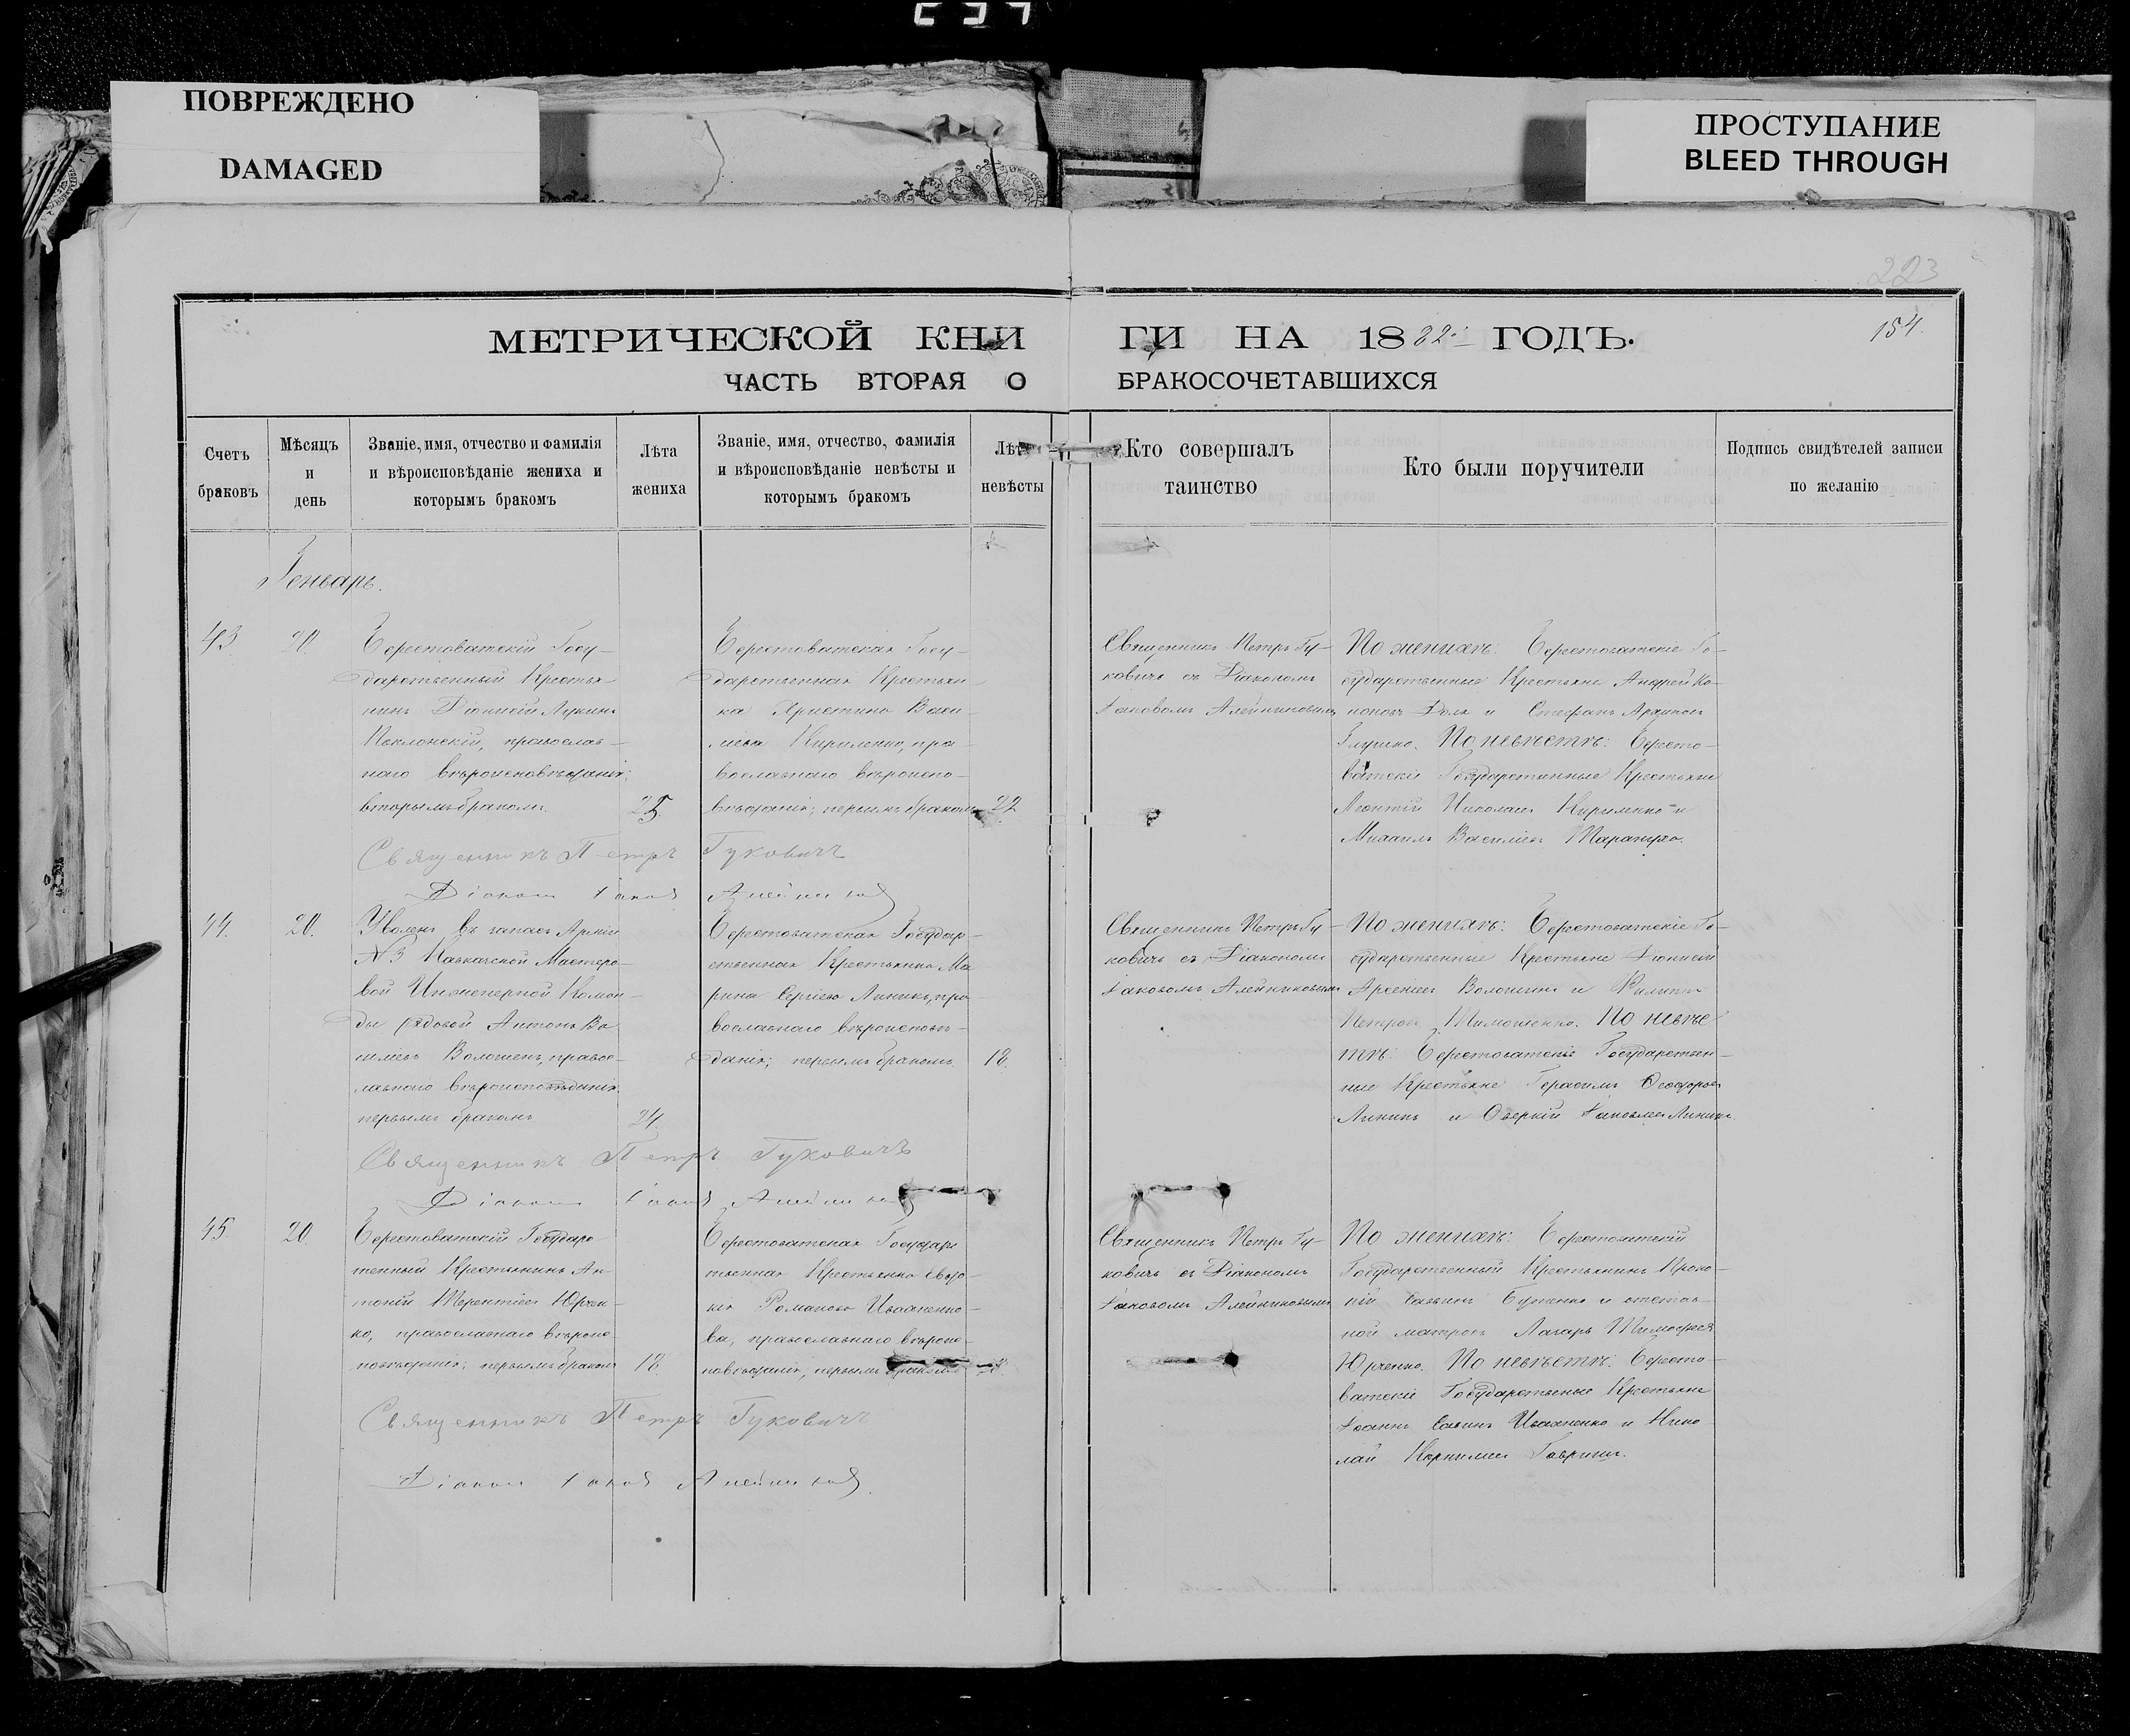 ПОВРЕЖДЕНО
DAMAGED
ПРОСТУПАНИЕ
BLEED THROUGH
223
МЕТРИЧЕСКОЙ КНИ
ГИ НА 1882 ГОДЪ.
154.
ЧАСТЬ ВТОРАЯ О
БРАКОСОЧЕТАВШИХСЯ
Счетъ
браковъ
Мѣсяцъ
и
день
Званіе, имя, отчество и фамилія
и вѣроисповѣданіе жениха и
которымъ бракомъ
Лѣта
жениха
Званіе, имя, отчество, фамилія
и вѣроисповѣданіе невѣсты и
которымъ бракомъ
Лѣта
невѣсты
Кто совершалъ
таинство
Кто были поручители
Подпись свидѣтелей записи
по желанію
Генварь.
43.
20.
Берестоватскій Госу-
дарственный Крестья-
нинъ Діонисій Лукинъ
православ-
наго вѣроисповѣданія;
вторымъ бракомъ.
25.
Берестоватская Госу-
дарственная Крестьян-
ка Христина Васи-
ліева Кириленко, пра-
вославнаго вѣроиспо-
вѣданія; первымъ бракомъ
22
Священникъ Петръ Гу-
ковичъ съ Діакономъ
Іаковомъ Алейниковымъ
По женихѣ: Берестоватскіе Го-
сударственные Крестьяне Андрей Ко-
и Стефанъ
По невѣстѣ: Бересто-
ватскіе Государственные Крестьяне
Леонтій Николаевъ Кириленко и
Михаилъ Василіевъ
Священникъ Петръ Гуковичъ
Діаконъ Іаковъ Алейниковъ
44.
20.
Уволенъ въ запасъ Арміи
№3 Кавказской Мастеро-
вой Инженерной Коман-
ды рядовой Антонъ Ва-
силіевъ Волошенъ, правос-
лавнаго вѣроисповѣданія
первымъ бракомъ
24.
Берестоватская Государ-
ственная Крестьянка Ма-
рина Сергіева Линикъ, пра-
вославнаго вѣроисповѣ-
данія; первымъ бракомъ.
18.
Священникъ Петръ Гу-
ковичъ съ Діакономъ
Іаковомъ Алейниковымъ
По женихѣ: Берестоватскіе Го-
сударственные Крестьяне Діонисій
Арсеніевъ Волошинъ и Филиппъ
Петровъ Тимошенко. По невѣс-
тѣ: Берестоватскіе Государствен-
ные Крестьяне Герасимъ Ѳеодоровъ
Линикъ и Оверкій Іаковлевъ Линикъ.
Священникъ Петръ Гуковичъ
Діаконъ Іаковъ Алейниковъ
45.
20.
Берестоватскій Государс-
твенный Крестьянинъ Ан-
тоній Терентіевъ Юрчен-
ко, православнаго вѣроис-
повѣданія; первымъ бракомъ
18.
Берестоватская Государс-
твенная Крестьянка Евдо-
кія Романова Иваненко-
ва, православнаго вѣроис-
повѣданія, первымъ бракомъ
Священникъ Петръ Гу-
ковичъ съ Діакономъ
Іаковомъ Алейниковымъ
По женихѣ: Берестоватскій
Государственный Крестьянинъ Проко-
пій Саввинъ Бутенко и отстав-
ной матросъ Лазарь Тимофеевъ
Юрченко. По невѣстѣ: Бересто-
ватскіе Государственные Крестьяне
Іоаннъ Саввинъ Иваненко и Нико-
лай Корниліевъ Гавришъ.
Священникъ Петръ Гуковичъ
Діаконъ Іаковъ Алейниковъ.